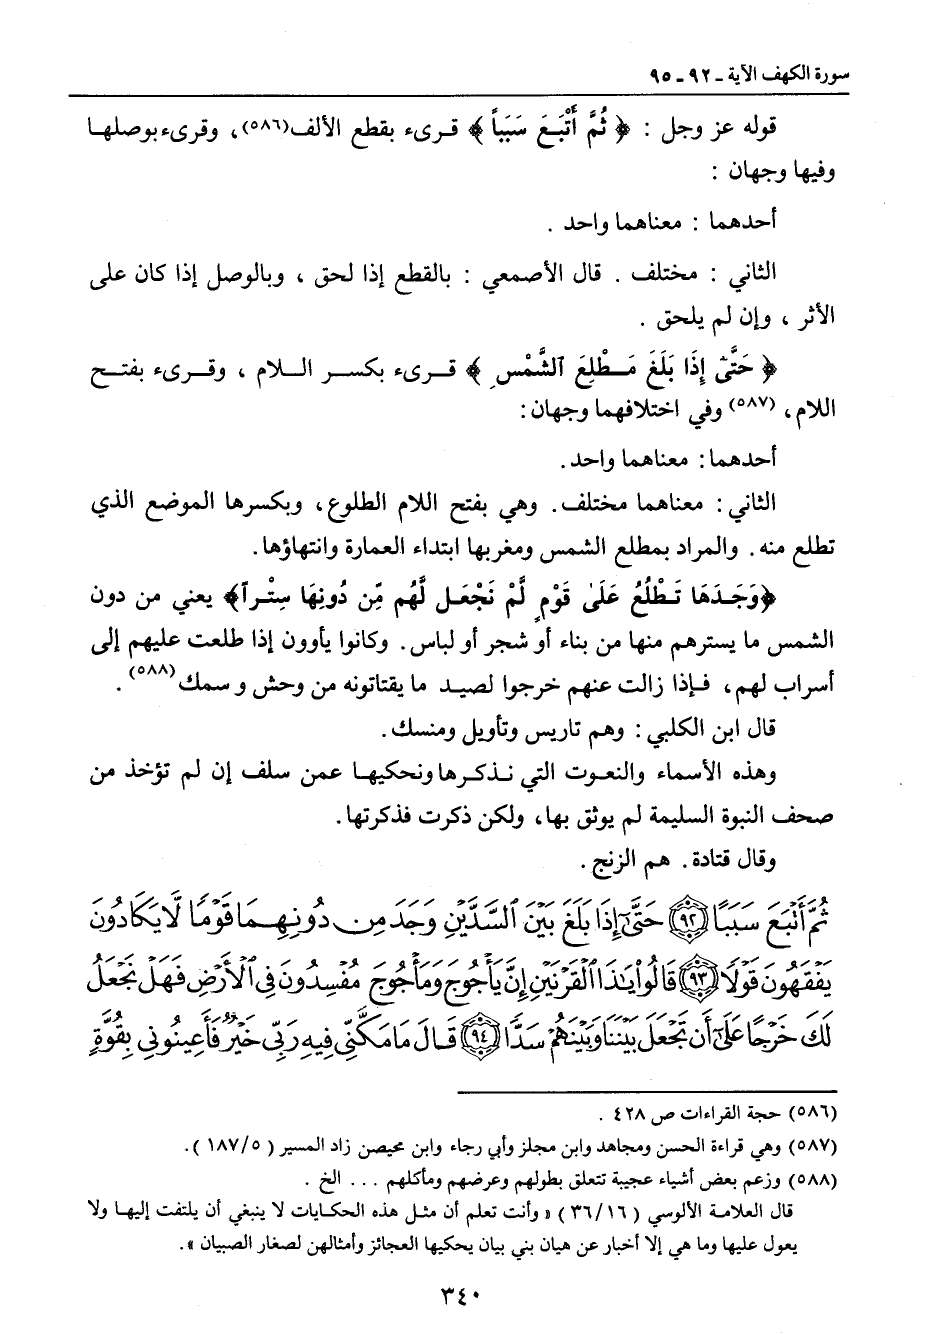 سورة الكهف الآية ـ ٩٢ ـ ٩٥
قوله عز وجل : ﴿ ثُمَّ أَتْبَعَ سَبَباً ﴾ قرىء بقطع الألف(٥٨٦)، وقرىء بوصلها
وفيها وجهان :
أحدهما : معناهما واحد .
الثاني : مختلف . قال الأصمعي : بالقطع إذا لحق ، وبالوصل إذا كان على
الأثر ، وإن لم يلحق .
﴿ حَتَّىٰ إِذَا بَلَغَ مَطْلِعَ الشَّمْسِ ﴾ قرىء بكسر اللام ، وقرىء بفتح
اللام، (٥٨٧) وفي اختلافهما وجهان:
أحدهما: معناهما واحد.
الثاني: معناهما مختلف. وهي بفتح اللام الطلوع، وبكسرها الموضع الذي
تطلع منه. والمراد بمطلع الشمس ومغربها ابتداء العمارة وانتهاؤها.
﴿وَجَدَهَا تَطْلُعُ عَلَىٰ قَوْمٍ لَّمْ نَجْعَل لَّهُم مِّن دُونِهَا سِتْراً﴾ يعني من دون
الشمس ما يسترهم منها من بناء أو شجر أو لباس. وكانوا يأوون إذا طلعت عليهم إلى
أسراب لهم، فإذا زالت عنهم خرجوا لصيد ما يقتاتونه من وحش و سمك(٥٨٨).
قال ابن الكلبي: وهم تاريس وتأويل ومنسك.
وهذه الأسماء والنعوت التي نذكرها ونحكيها عمن سلف إن لم تؤخذ من
صحف النبوة السليمة لم يوثق بها، ولكن ذكرت فذكرتها.
وقال قتادة. هم الزنج .
ثُمَّ أَتْبَعَ سَبَبًا ٩٢ حَتَّىٰ إِذَا بَلَغَ بَيْنَ السَّدَّيْنِ وَجَدَ مِن دُونِهِمَا قَوْمًا لَّا يَكَادُونَ
يَفْقَهُونَ قَوْلًا ٩٣ قَالُوا يَاذَا الْقَرْنَيْنِ إِنَّ يَأْجُوجَ وَمَأْجُوجَ مُفْسِدُونَ فِي الْأَرْضِ فَهَلْ نَجْعَلُ
لَكَ خَرْجًا عَلَىٰ أَن تَجْعَلَ بَيْنَنَا وَبَيْنَهُمْ سَدًّا ٩٤ قَالَ مَا مَكَّنِّي فِيهِ رَبِّي خَيْرٌ فَأَعِينُونِي بِقُوَّةٍ
(٥٨٦) حجة القراءات ص ٤٢٨ .
(٥٨٧) وهي قراءة الحسن ومجاهد وابن مجلز وأبي رجاء وابن محيصن زاد المسير ( ٥/ ١٨٧ ).
(٥٨٨) وزعم بعض أشياء عجيبة تتعلق بطولهم وعرضهم ومأكلهم ... الخ .
قال العلامة الألوسي ( ١٦/ ٣٦ ) « وأنت تعلم أن مثل هذه الحكايات لا ينبغي أن يلتفت إليها ولا
يعول عليها وما هي إلا أخبار عن هيان بني بيان يحكيها العجائز وأمثالهن لصغار الصبيان ».
٣٤٠